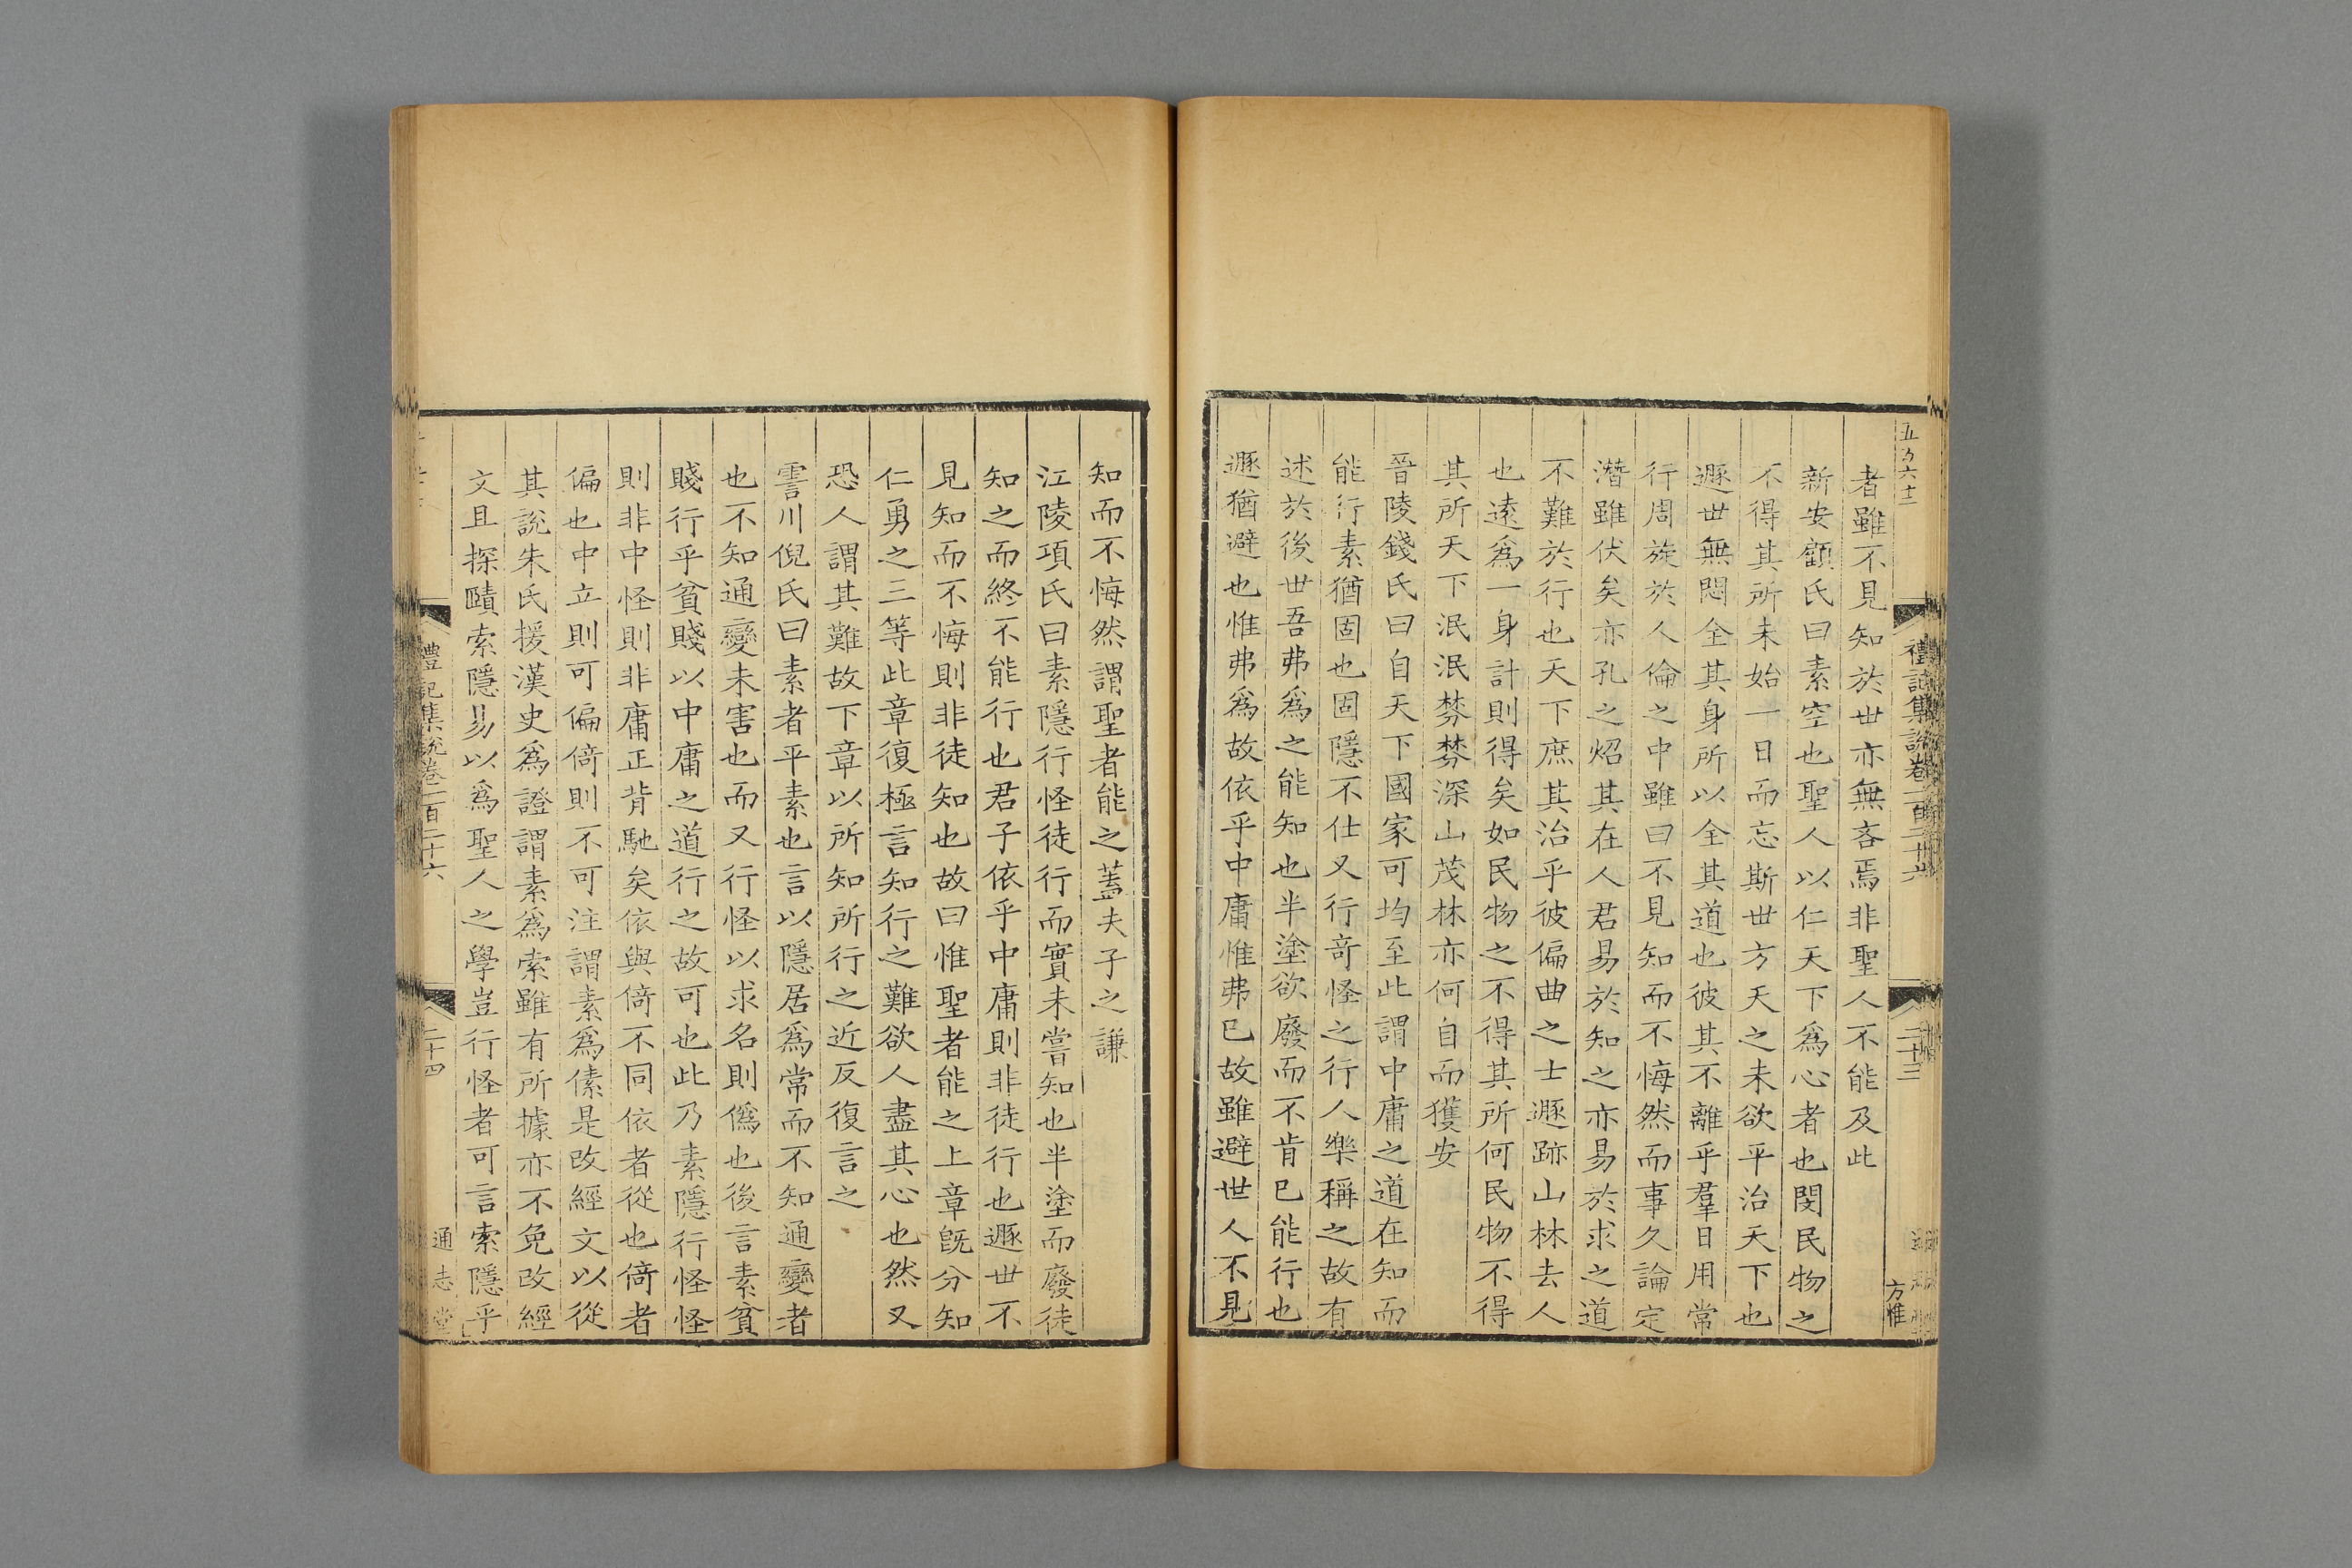 五百六十二
禮記集説卷一百二十六
二十三
方惟
者雖不見知於世亦無吝焉非聖人不能及此
新安顧氏曰素空也聖人以仁天下爲心者也閔民物之
不得其所未始一日而忘斯世方天之未欲平治天下也
遯世無悶全其身所以全其道也彼其不離乎羣日用常
行周旋於人倫之中雖曰不見知而不悔然而事久論定
潛雖伏矣亦孔之炤其在人君易於知之亦易於求之道
不難於行也天下庶其治乎彼偏曲之士遯跡山林去人
也遠爲一身計則得矣如民物之不得其所何民物不得
其所天下泯泯棼棼深山茂林亦何自而獲安
晉陵錢氏曰自天下國家可均至此謂中庸之道在知而
能行素猶固也固隱不仕又行奇怪之行人樂稱之故有
述於後世吾弗爲之能知也半塗欲廢而不肯已能行也
遯猶避也惟弗爲故依乎中庸惟弗已故雖避世人不見
知而不悔然謂聖者能之蓋夫子之謙
江陵項氏曰素隱行怪徒行而實未嘗知也半塗而廢徒
知之而終不能行也君子依乎中庸則非徒行也遯世不
見知而不悔則非徒知也故曰惟聖者能之上章既分知
仁勇之三等此章復極言知行之難欲人盡其心也然又
恐人謂其難故下章以所知所行之近反復言之
霅川倪氏曰素者平素也言以隱居爲常而不知通變者
也不知通變未害也而又行怪以求名則僞也後言素貧
賤行乎貧賤以中庸之道行之故可也此乃素隱行怪怪
則非中怪則非庸正背馳矣依與倚不同依者從也倚者
偏也中立則可偏倚則不可注謂素爲傃是改經文以從
其說朱氏援漢史爲證謂素爲索雖有所據亦不免改經
文且探賾索隱易以爲聖人之學豈行怪者可言索隱乎
禮記集説卷一百二十六
二十四
通志堂